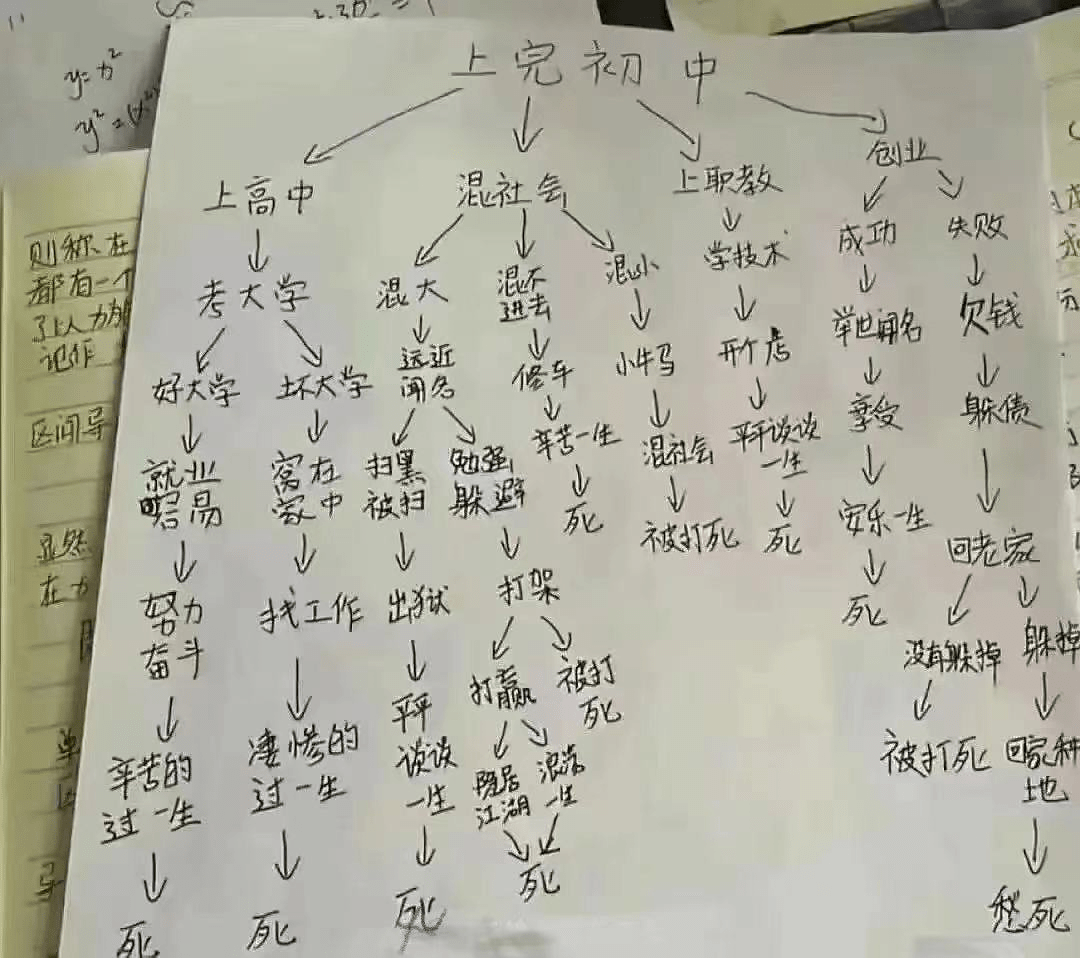 y=x²
上完初中
上高中
混社会
上职教
创业
考大学
混大
混不
进去
混小
学技术
成功
失败
好大学
坏大学
远近
闻名
修车
小牛马
开个店
举世闻名
欠钱
就业
容易
窝在
家中
扫黑
被扫
勉强
躲避
辛苦一生
混社会
平平谈谈
一生
享受
躲债
努力
奋斗
找工作
出狱
打架
死
被打死
死
安乐一生
回老家
辛苦的
过一生
凄惨的
过一生
平平
谈谈
一生
打赢
被打
死
死
没有躲掉
躲掉
隐居
江湖
浪荡
一生
被打死
回家种
地
死
死
死
死
愁死
则称在
都有一个
记作
区间导
显然
在